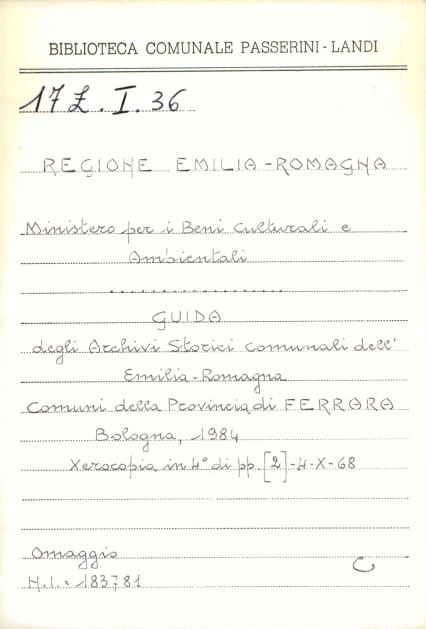 BIBLIOTECA COMUNALE PASSERINI-LANDI
17 Z. I. 36
REGIONE EMILIA-ROMAGNA
Ministero per i Beni Culturali e
Ambientali
................
GUIDA
degli Archivi Storici Comunali dell'
Emilia-Romagna
Comuni della Provincia di FERRARA
Bologna, 1984
Xerocopia in 4° di pp. [2]-4-X-68
Omaggio
C
H.I.: 183781